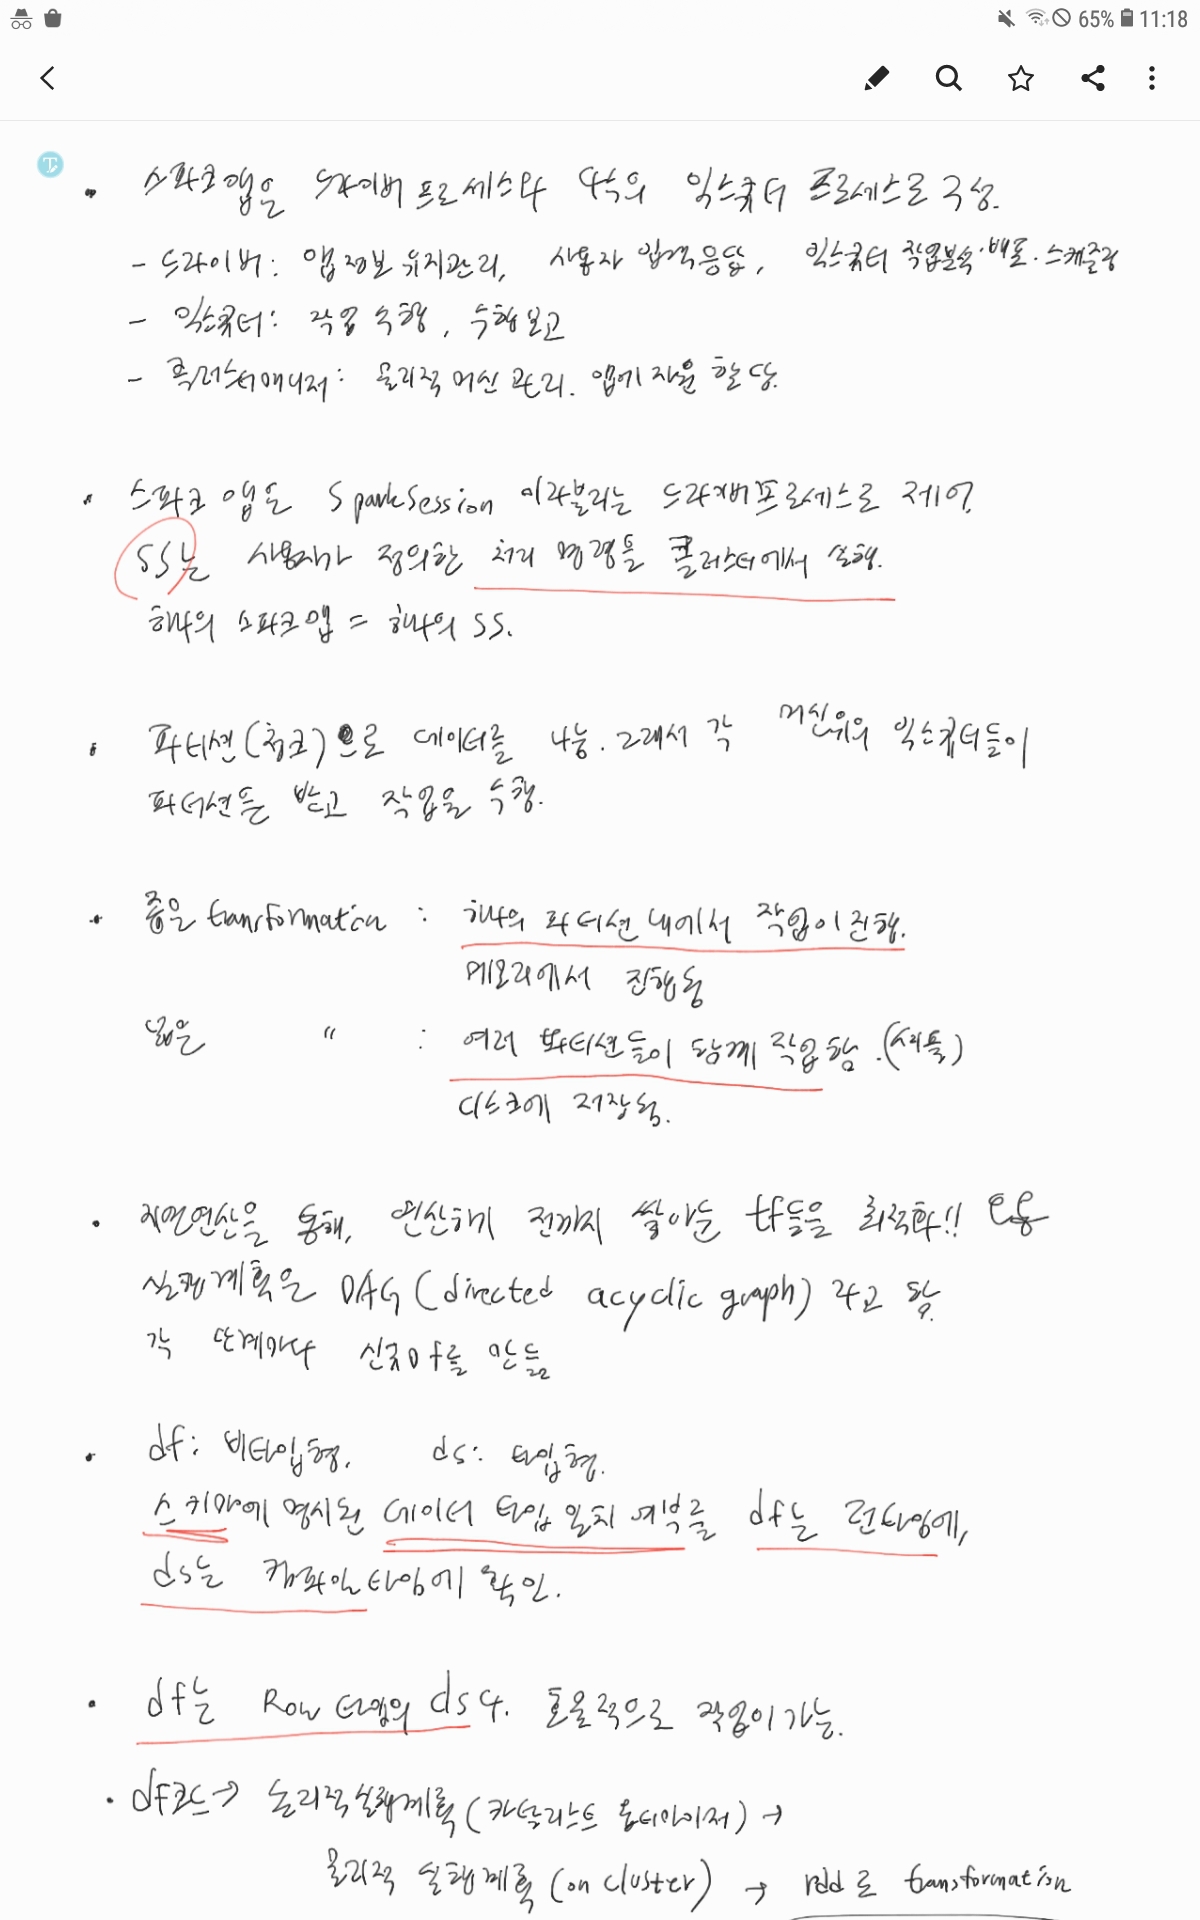 65% 11:18
• 스파크앱은 드라이버 프로세스와 다수의 익스큐터 프로세스로 구성.
- 드라이버: 앱 정보 유지관리, 사용자 입력응답, 익스큐터 작업분석·배포·스케줄링
- 익스큐터: 작업 수행, 수행보고
- 클러스터매니저: 물리적 머신 관리. 앱에 자원 할당.
• 스파크 앱은 SparkSession 이라불리는 드라이버프로세스로 제어.
SS는 사용자가 정의한 처리 명령을 클러스터에서 실행.
하나의 스파크앱 = 하나의 SS.
• 파티션(청크)으로 데이터를 나눔. 그래서 각 머신위의 익스큐터들이
파티션을 받고 작업을 수행.
• 좁은 transformation : 하나의 파티션 내에서 작업이 진행.
메모리에서 진행됨
넓은 〃 : 여러 파티션들이 함께 작업함.(셔플)
디스크에 저장됨.
• 지연연산을 통해, 연산하기 전까지 쌓아둔 tf들을 최적화!!
실행계획을 DAG(directed acyclic graph) 라고 함.
각 단계마다 신규 df를 만듦
• df: 비타입형, ds: 타입형.
스키마에 명시된 데이터 타입 일치 여부를 df는 런타임에,
ds는 컴파일타임에 확인.
• df는 Row 타입의 ds다. 효율적으로 작업이 가능.
• df코드→ 논리적실행계획(카탈리스트 옵티마이저) →
물리적 실행계획(on cluster) → rdd로 transformation